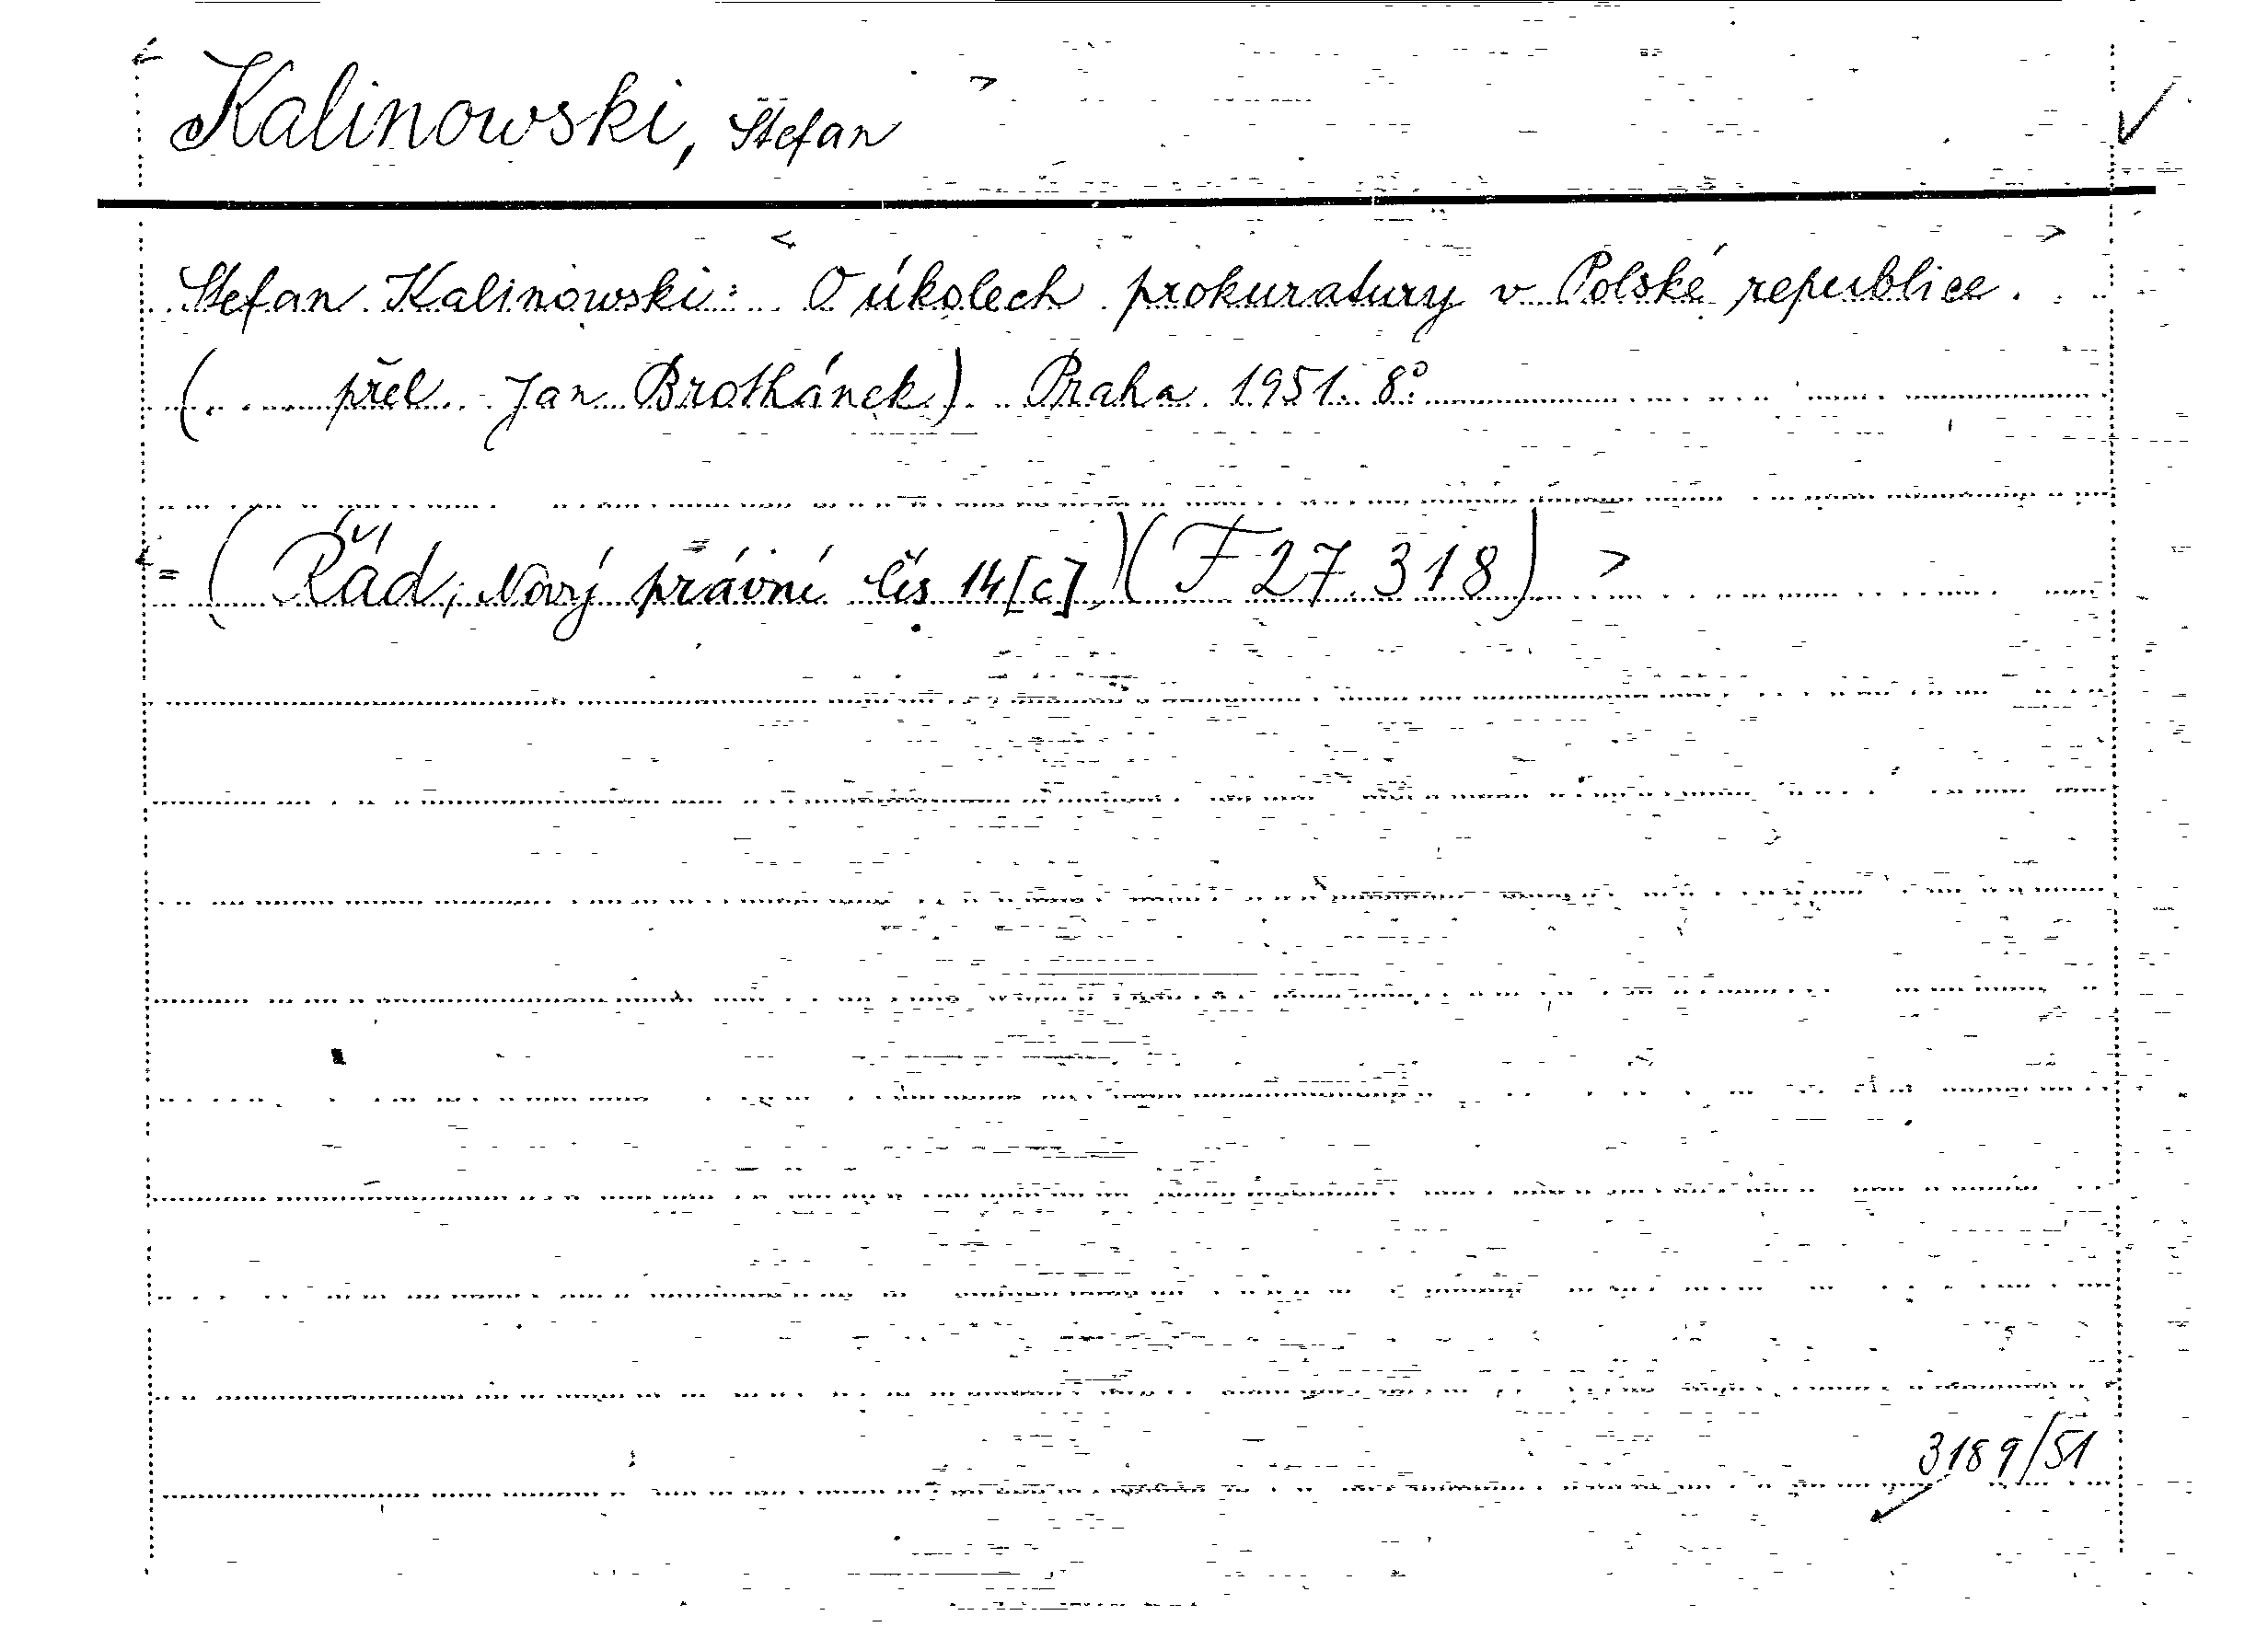 Kalinowski, Stefan
Stefan Kalinowski: O úkolech prokuratury v Polské republice.
( přel. Jan Brothánek) Praha 1951. 8°
= (Řád, Nový právní čís 14[c])(F 27.318)
3189/51